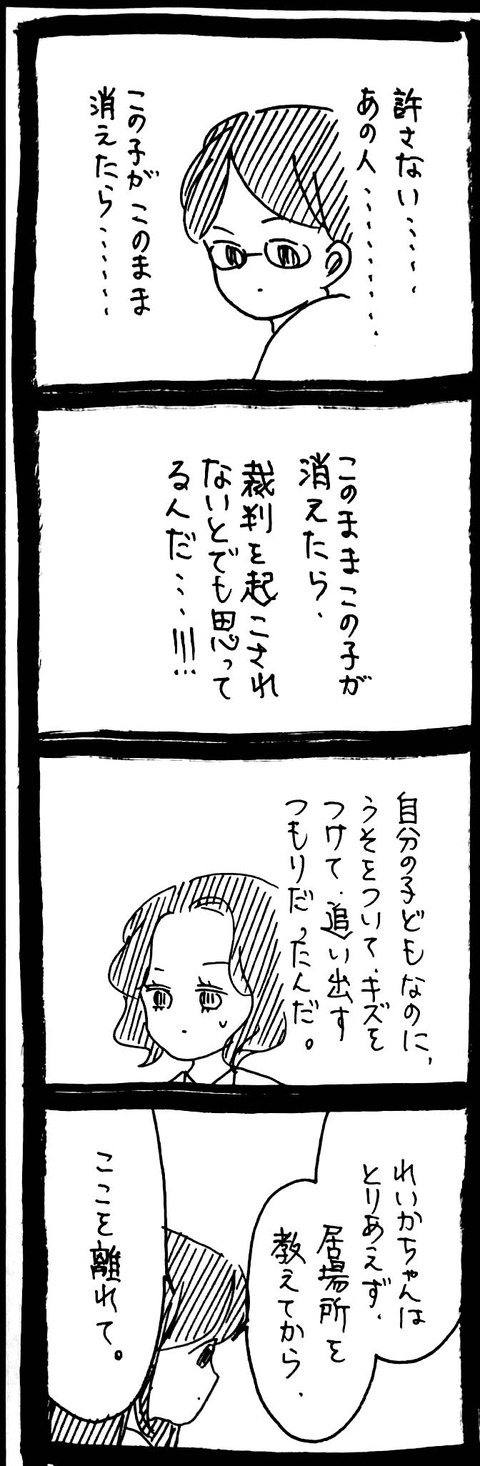 許さない……
あの人………
この子がこのまま
消えたら……
このままこの子が
消えたら、
裁判を起こされ
ないとでも思って
るんだ…!!!
自分の子どもなのに、
うそをついて、キズを
つけて、追い出す
つもりだったんだ。
れいかちゃんは
とりあえず、
居場所を
教えてから、
ここを離れて。